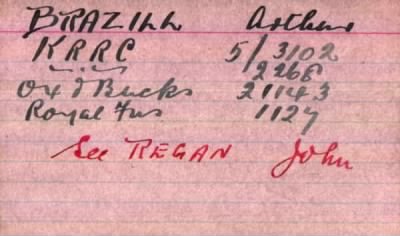 BRAZILL Arthur
KRRC 5/3102
" " 2268
Ox & Bucks 21143
Royal Fus 1127
See REGAN John